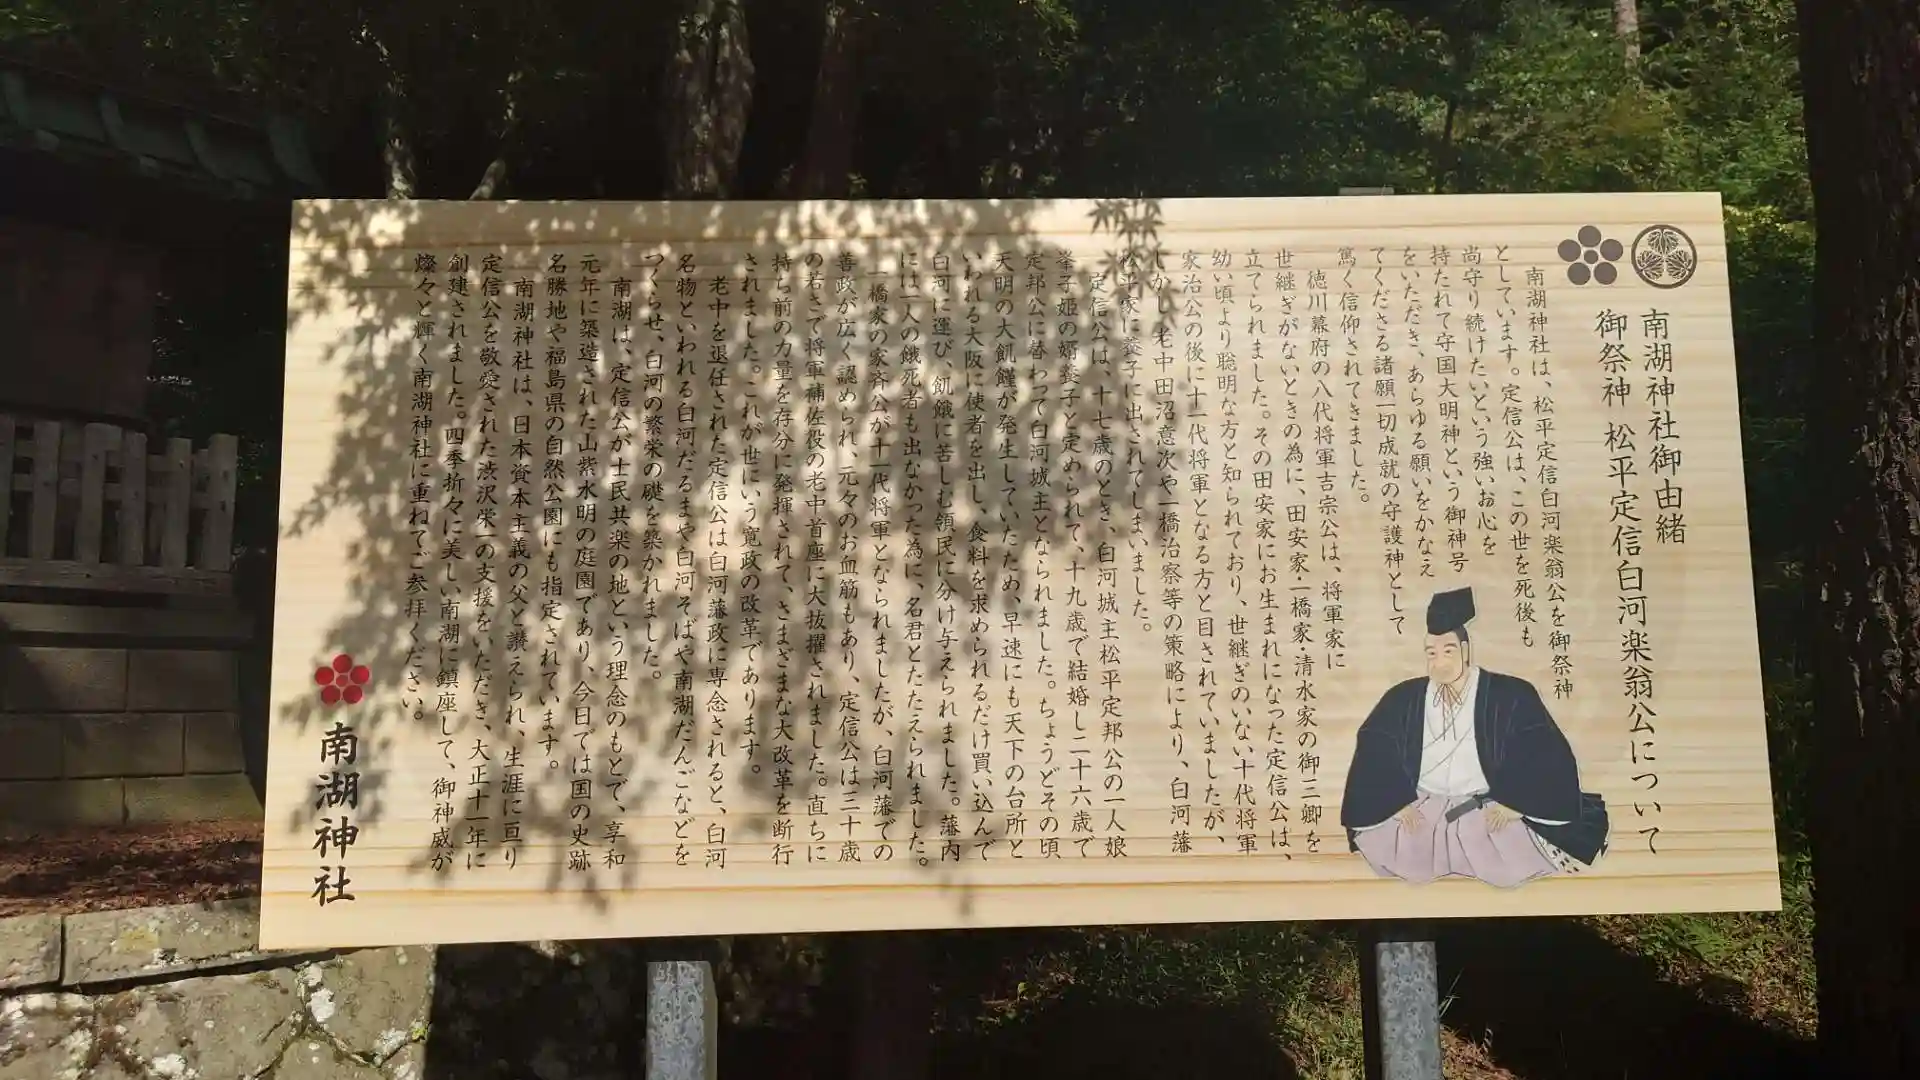 南湖神社御由緒
御祭神 松平定信白河楽翁公について
南湖神社は、松平定信白河楽翁公を御祭神
としています。定信公は、この世を死後も
尚守り続けたいという強いお心を
持たれて守国大明神という御神号
をいただき、あらゆる願いをかなえ
てくださる諸願一切成就の守護神として
篤く信仰されてきました。
徳川幕府の八代将軍吉宗公は、将軍家に
世継ぎがないときの為に、田安家・一橋家・清水家の御三卿を
立てられました。その田安家にお生まれになった定信公は、
幼い頃より聡明な方と知られており、世継ぎのいない十代将軍
家治公の後に十一代将軍となる方と目されていましたが、
しかし、老中田沼意次や一橋治察等の策略により、白河藩
松平家に養子に出されてしまいました。
定信公は、十七歳のとき、白河城主松平定邦公の一人娘
峯子姫の婿養子と定められて、十九歳で結婚し二十六歳で
定邦公に替わって白河城主となられました。ちょうどその頃
天明の大飢饉が発生していたため、早速にも天下の台所と
いわれる大阪に使者を出し、食料を求められるだけ買い込んで
白河に運び、飢餓に苦しむ領民に分け与えられました。藩内
には一人の餓死者も出なかった為に、名君とたたえられました。
一橋家の家斉公が十一代将軍となられましたが、白河藩での
善政が広く認められ、元々のお血筋もあり、定信公は三十歳
の若さで将軍補佐役の老中首座に大抜擢されました。直ちに
持ち前の力量を存分に発揮されて、さまざまな大改革を断行
されました。これが世にいう寛政の改革であります。
老中を退任された定信公は白河藩政に専念されると、白河
名物といわれる白河だるまや白河そばや南湖だんごなどを
つくらせ、白河の繁栄の礎を築かれました。
南湖は、定信公が士民共楽の地という理念のもとで、享和
元年に築造された山紫水明の庭園であり、今日では国の史跡
名勝地や福島県の自然公園にも指定されています。
南湖神社は、日本資本主義の父と讃えられ、生涯に亘り
定信公を敬愛された渋沢栄一の支援をいただき、大正十一年に
創建されました。四季折々に美しい南湖に鎮座して、御神威が
燦々と輝く南湖神社に重ねてご参拝ください。
南湖神社